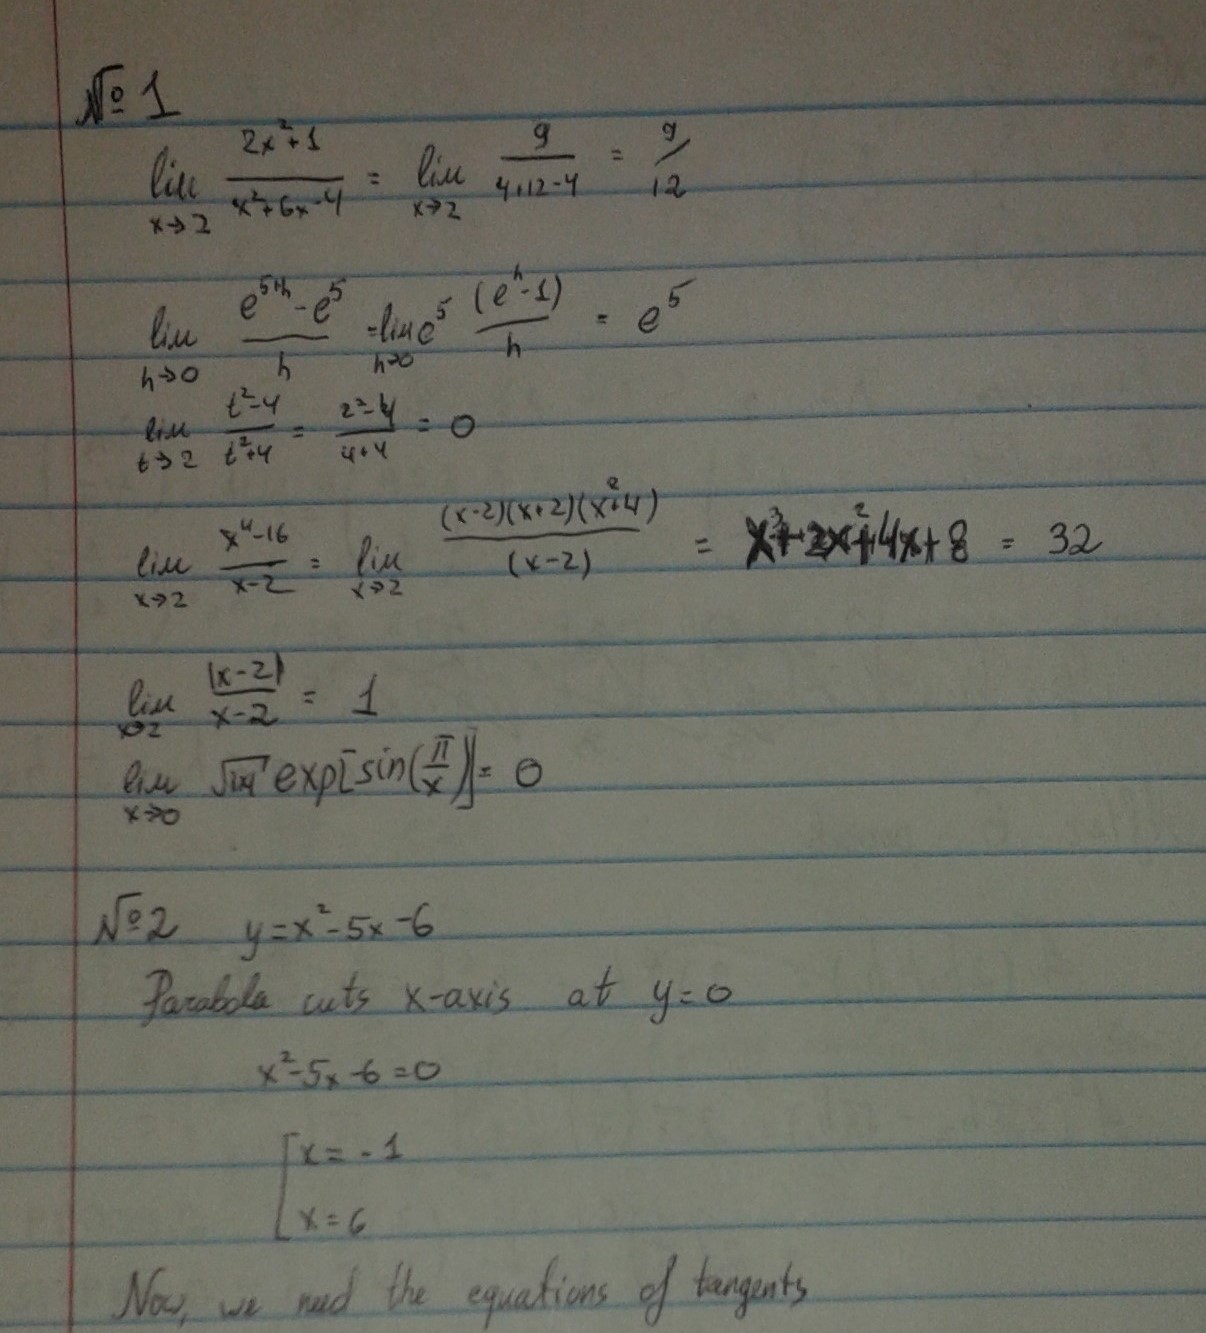 № 1
lim x→2 (2x²+1)/(x²+6x-4) = lim x→2 9/(4+12-4) = 9/12
lim h→0 (e^(5+h) - e⁵)/h = lim h→0 e⁵ (e^h - 1)/h = e⁵
lim t→2 (t²-4)/(t²+4) = (2²-4)/(4+4) = 0
lim x→2 (x⁴-16)/(x-2) = lim x→2 (x-2)(x+2)(x²+4)/(x-2) = x³+2x²+4x+8 = 32
lim x→2 |x-2|/(x-2) = 1
lim x→0 exp[sin(π/x)] = 0
№ 2 y=x²-5x-6
Parabola cuts x-axis at y=0
x²-5x-6=0
[x=-1
x=6
Now, we need the equations of tangents